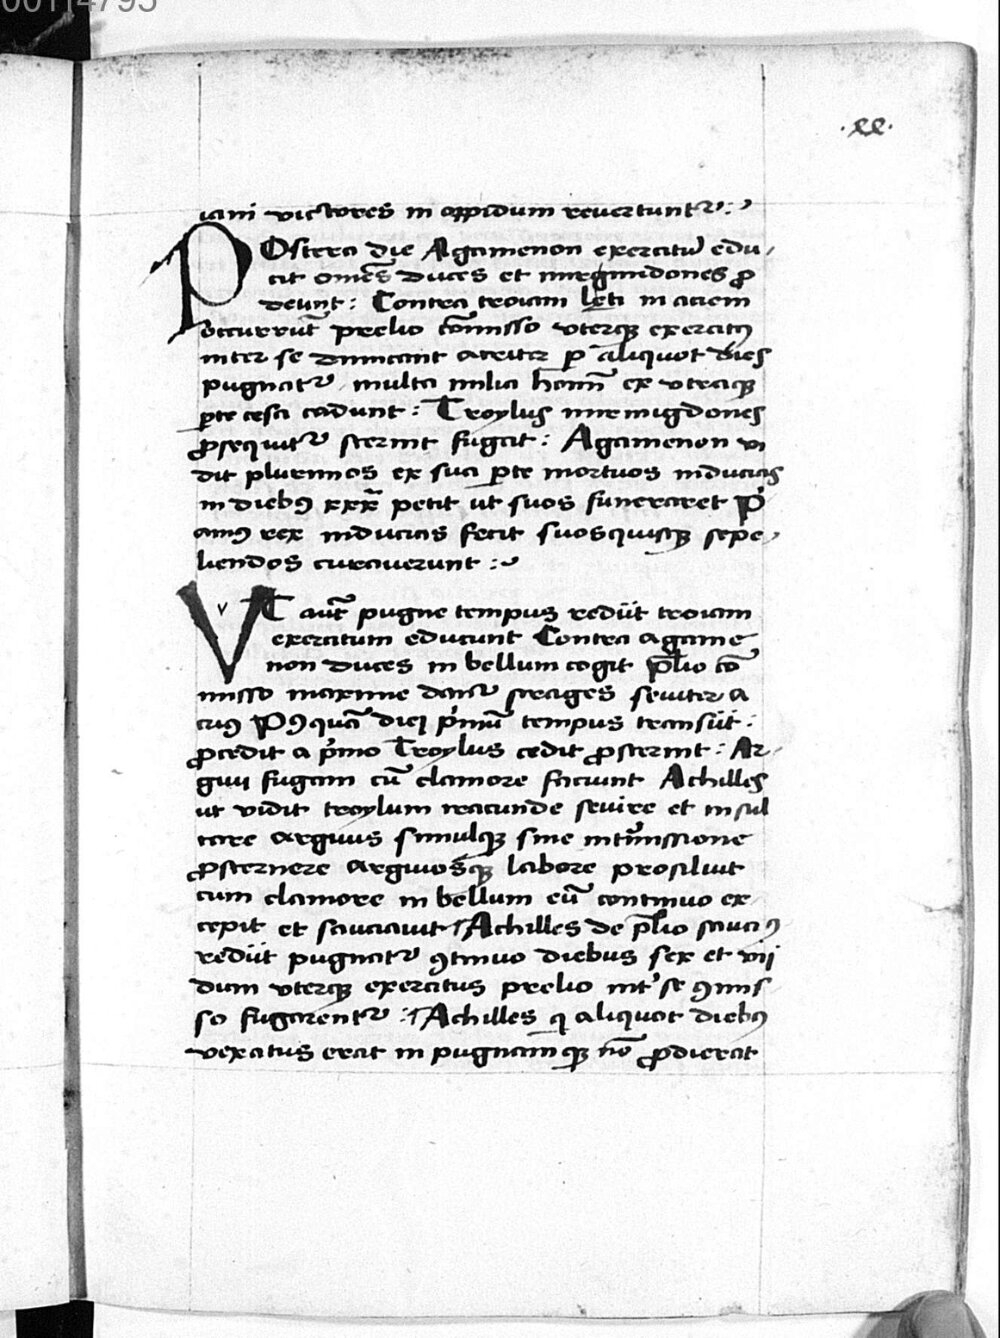 00114795
.xx.
iani victores in oppidum revertuntr̃ :~
POstera die Agamenon exercitũ edu
cit om̃es duces et mirgmidones ꝓ
deunt : Contra troiam leti in aciem
occurrũt prelio com̃isso uterqꝫ exercitꝰ
inter se dimicant acriter ꝑ aliquot dies
pugnatr̃ multa milia homĩ ex utraqꝫ
ꝑte cesa cadunt : Troylus mirmigdones
ꝓsequitr̃ sternit fugat : Agamenon vi
dit plurimos ex sua ꝑte mortuos inducias
in diebꝰ xxx̃ petit ut suos funeraret Pⁱ
amꝰ rex inducias fecit suosquisqꝫ sepe
liendos curaverunt :~
VT aut̃ pugne tempus rediit troiam
exercitum educunt Contra agame
non duces in bellum cogit p̃lio cõ
misso maxime dantr̃ strages seviter a
crius Pꝰquã diei pⁱmũ tempus transiit :
ꝓcedit a pⁱmo Troylus cedit ꝓsternit : Ar
guii fugam cũ clamore faciunt Achilles
ut vidit troylum iracunde sevire et insul
tare arguus simulqꝫ sine int̃missione
ꝓsternere arguiosqꝫ labore prosiluit
cum clamore in bellum eũ continuo ex
cepit et sauciavit Achilles de p̃lio sauciꝰ
rediit pugnatr̃ ꝯtinuo diebus sex et vij
dum uterqꝫ exercitus prelio int̃ se ꝯmis
so fugarentr̃ : Achilles q̃ aliquot diebꝰ
vexatus erat in pugnamqꝫ nõ ꝓdierat